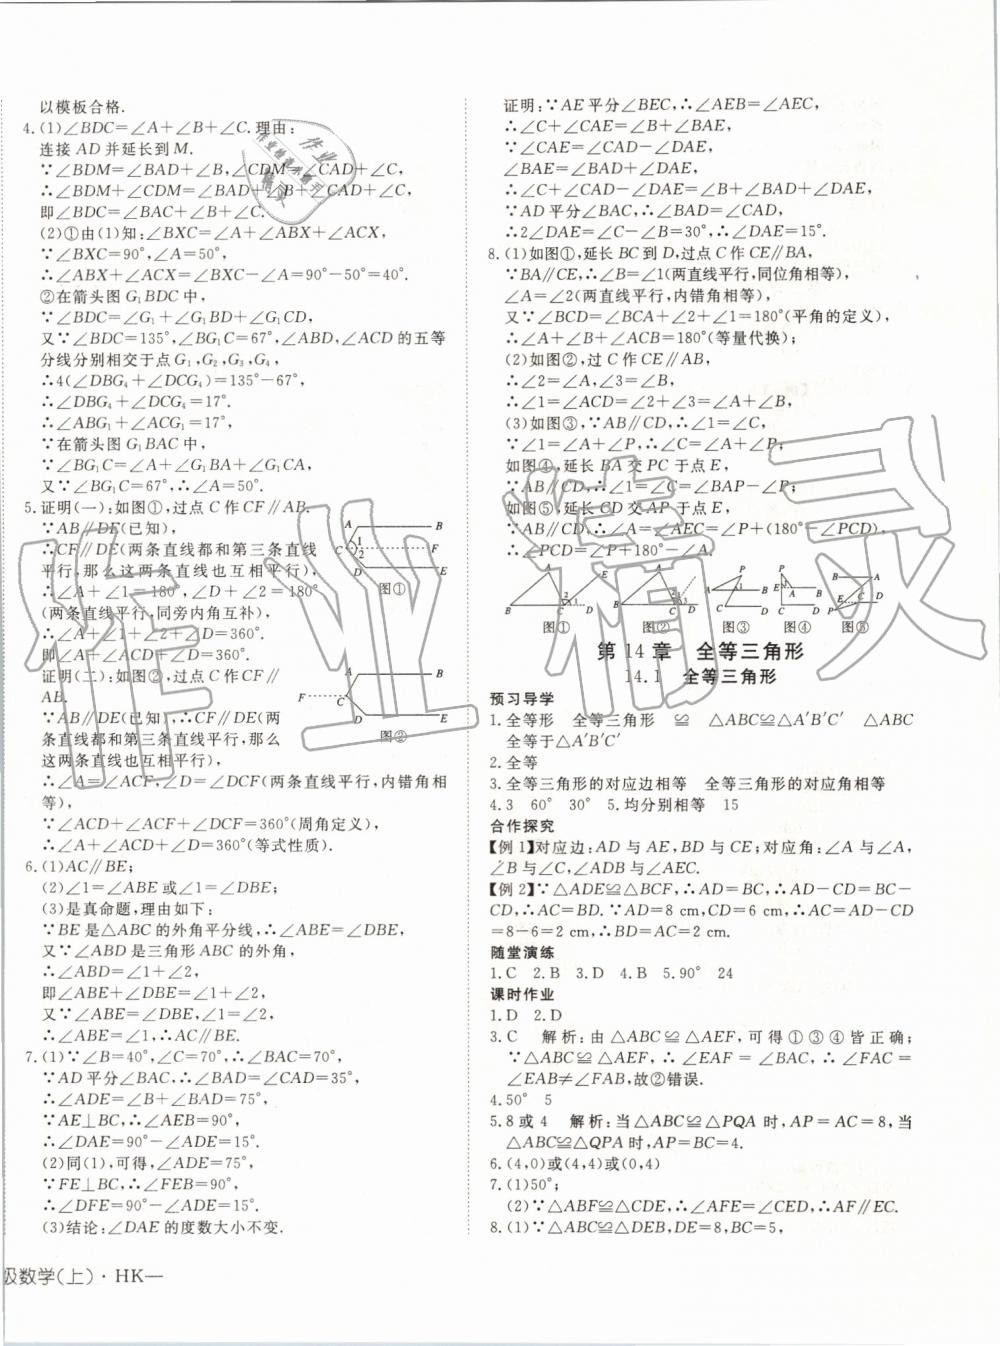 以模板合格.
4.(1)∠BDC=∠A+∠B+∠C.理由:
连接 AD 并延长到 M.
∵∠BDM=∠BAD+∠B,∠CDM=∠CAD+∠C,
∴∠BDM+∠CDM=∠BAD+∠B+∠CAD+∠C,
即∠BDC=∠BAC+∠B+∠C.
(2)①由(1)知:∠BXC=∠A+∠ABX+∠ACX,
∵∠BXC=90°,∠A=50°,
∴∠ABX+∠ACX=∠BXC-∠A=90°-50°=40°.
②在箭头图 G₁BDC 中,
∵∠BDC=∠G₁+∠G₁BD+∠G₁CD,
又∵∠BDC=135°,∠BG₁C=67°,∠ABD,∠ACD的五等
分线分别相交于点 G₁,G₂,G₃,G₄,
∴4(∠DBG₄+∠DCG₄)=135°-67°,
∴∠DBG₄+∠DCG₄=17°.
∴∠ABG₁+∠ACG₁=17°,
∵在箭头图 G₁BAC 中,
∵∠BG₁C=∠A+∠G₁BA+∠G₁CA,
又∵∠BG₁C=67°,∴∠A=50°.
5.证明(一):如图①,过点 C 作 CF∥AB.
∵AB∥DE(已知),
∴CF∥DE(两条直线都和第三条直线
平行,那么这两条直线也互相平行),
∴∠A+∠1=180°,∠2+∠D=180°
(两条直线平行,同旁内角互补),
∴∠A+∠1+∠2+∠D=360°.
即∠A+∠ACD+∠D=360°.
证明(二):如图②,过点 C 作 CF∥
AB.
∵AB∥DE(已知),∴CF∥DE(两
条直线都和第三条直线平行,那么
这两条直线也互相平行),
∴∠A=∠ACF,∠D=∠DCF(两条直线平行,内错角相
等),
∵∠ACD+∠ACF+∠DCF=360°(周角定义),
∴∠A+∠ACD+∠D=360°(等式性质).
6.(1)AC∥BE;
(2)∠1=∠ABE或∠1=∠DBE;
(3)是真命题,理由如下:
∵BE 是△ABC 的外角平分线,∴∠ABE=∠DBE,
又∵∠ABD 是三角形 ABC 的外角,
∴∠ABD=∠1+∠2,
即∠ABE+∠DBE=∠1+∠2,
又∵∠ABE=∠DBE,∠1=∠2,
∴∠ABE=∠1,∴AC∥BE.
7.(1)∵∠B=40°,∠C=70°,∴∠BAC=70°,
∵AD平分∠BAC,∴∠BAD=∠CAD=35°,
∴∠ADE=∠B+∠BAD=75°,
∵AE⊥BC,∴∠AEB=90°,
∴∠DAE=90°-∠ADE=15°.
(2)同(1),可得,∠ADE=75°,
∵FE⊥BC,∴∠FEB=90°,
∴∠DFE=90°-∠ADE=15°.
(3)结论:∠DAE 的度数大小不变.
图①
图②
级数学(上)·HK—
证明:∵AE 平分∠BEC,∴∠AEB=∠AEC,
∴∠C+∠CAE=∠B+∠BAE,
∵∠CAE=∠CAD+∠DAE,
∠BAE=∠BAD-∠DAE,
∴∠C+∠CAD+∠DAE=∠B+∠BAD-∠DAE,
∵AD平分∠BAC,∴∠BAD=∠CAD,
∴2∠DAE=∠C-∠B=30°,∴∠DAE=15°.
8.(1)如图①,延长 BC 到 D,过点 C 作 CE∥BA,
∵BA∥CE,∴∠B=∠1(两直线平行,同位角相等),
∠A=∠2(两直线平行,内错角相等),
又∵∠BCD=∠BCA+∠2+∠1=180°(平角的定义),
∴∠A+∠B+∠ACB=180°(等量代换);
(2)如图②,过 C 作 CE∥AB,
∴∠2=∠A,∠3=∠B,
∴∠1=∠ACD=∠2+∠3=∠A+∠B,
(3)如图③,∵AB∥CD,∴∠1=∠C,
∵∠1=∠A+∠P,∴∠C=∠A+∠P;
如图④,延长 BA 交 PC 于点 E,
∵AB∥CD,∴∠1=∠C=∠BAP-∠P;
如图⑤,延长 CD 交 AP 于点 E,
∵AB∥CD,∴∠A=∠AEC=∠P+(180°-∠PCD),
∴∠PCD=180°-∠A+∠P.
图① 图② 图③ 图④ 图⑤
第 14 章 全等三角形
14.1 全等三角形
预习导学
1.全等形 全等三角形 ≌ △ABC≌△A′B′C′ △ABC
全等于△A′B′C′
2.全等
3.全等三角形的对应边相等 全等三角形的对应角相等
4.3 60° 30° 5.均分别相等 15
合作探究
【例 1】对应边:AD 与 AE,BD 与 CE;对应角:∠A 与∠A,
∠B 与∠C,∠ADB 与∠AEC.
【例 2】∵△ADE≌△BCF,∴AD=BC,∴AD-CD=BC-
CD,∴AC=BD.∵AD=8 cm,CD=6 cm,∴AC=AD-CD
=8-6=2 cm,∴BD=AC=2 cm.
随堂演练
1.C 2.B 3.D 4.B 5.90° 24
课时作业
1.D 2.D
3.C 解析:由△ABC≌△AEF,可得①③④皆正确;
∵△ABC≌△AEF,∴∠EAF=∠BAC,∴∠FAC=
∠EAB≠∠FAB,故②错误.
4.50° 5
5.8或 4 解析:当△ABC≌△PQA 时,AP=AC=8,当
△ABC≌△QPA时,AP=BC=4.
6.(4,0)或(4,4)或(0,4)
7.(1)50°;
(2)∵△ABF≌△CDE,∴∠AFE=∠CED,∴AF∥EC.
8.(1)∵△ABC≌△DEB,DE=8,BC=5,
作业精灵